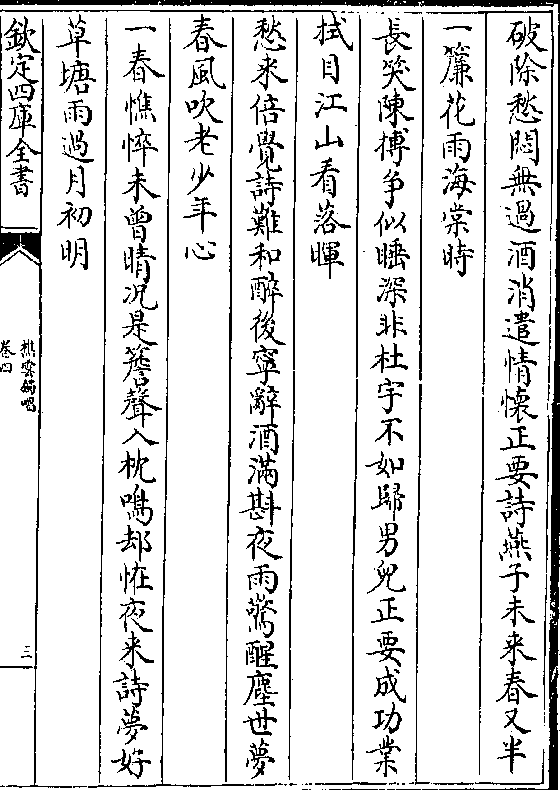 破除愁悶無過酒消遣情懷正要詩燕子未来春又半
一簾花雨海棠時
長笑陳摶争似睡深非杜宇不如歸男兒正要成功業
拭目江山看落暉
愁来倍覺詩難和醉後寧辭酒滿斟夜雨驚醒塵世夢
春風吹老少年心
一春憔悴未曾晴况是簷聲入枕鳴却恠夜来詩夢好
草塘雨過月初明
欽定四庫全書
樵雲獨唱
卷四
三